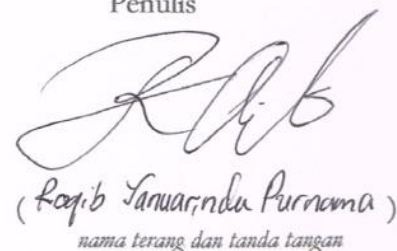 Penulis
(Roqib Januarindu Purnama)
nama terang dan tanda tangan